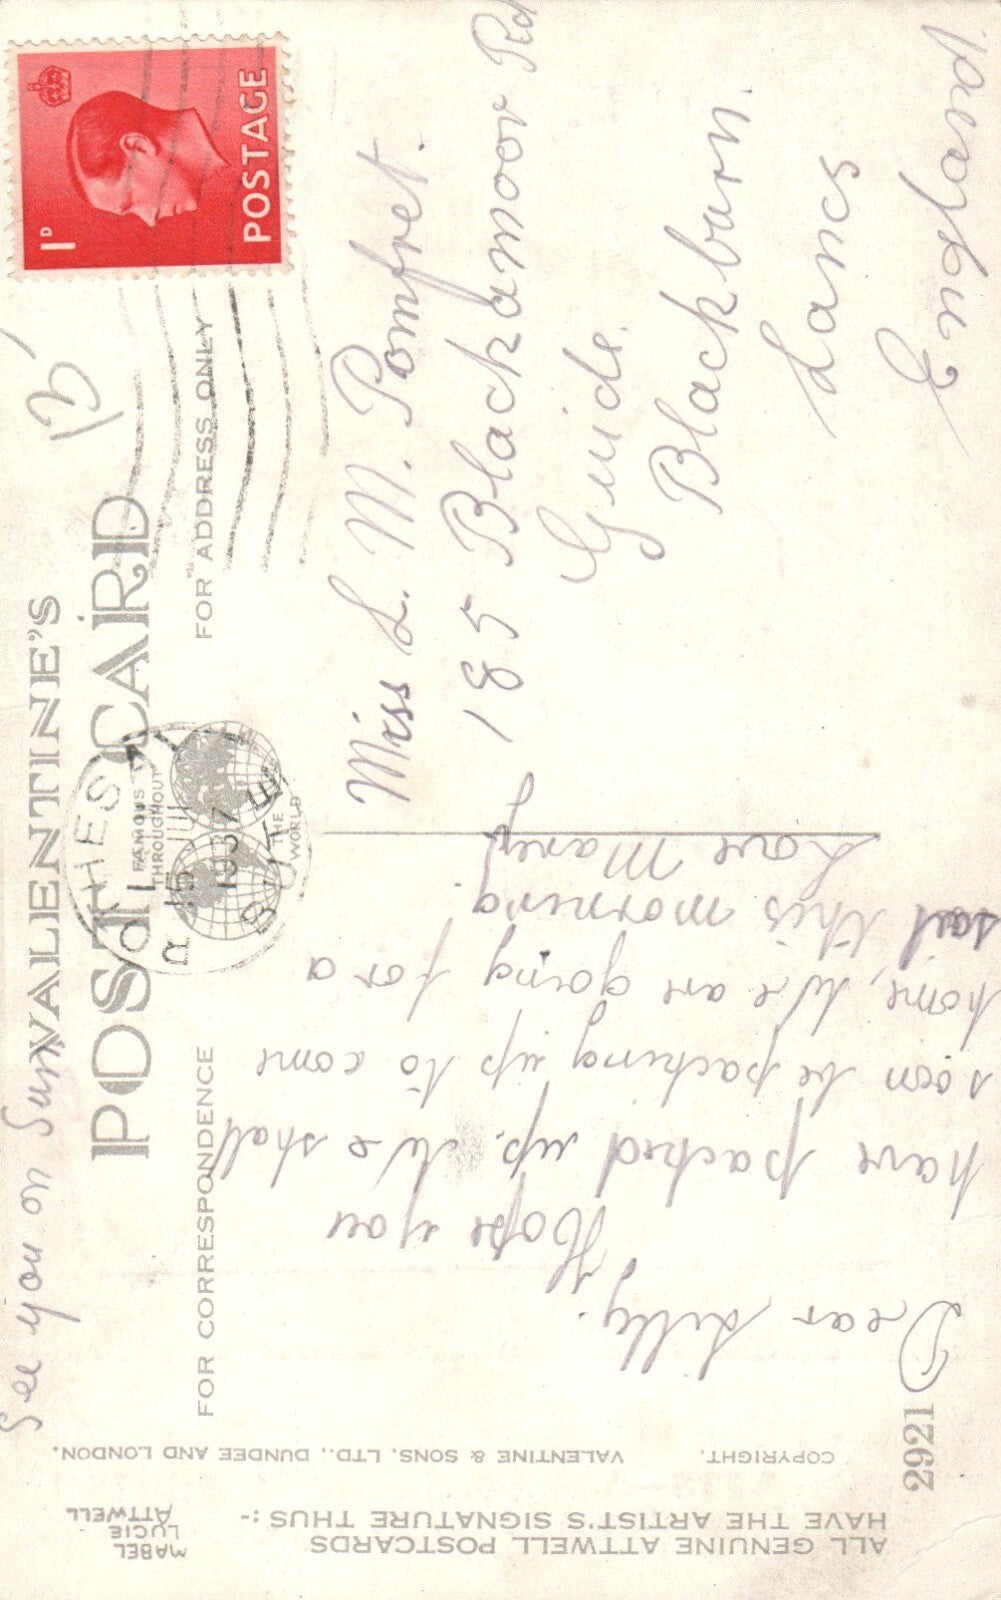 See you on Sun
VALENTINE'S
POST CARD
FAMOUS
THROUGHOUT
THE
WORLD
FOR CORRESPONDENCE
FOR ADDRESS ONLY
POSTAGE
1D
ROTHESAY
15 JUL
1937
BUTE
Miss L. M. Pomfret.
185 Blackamoor Rd
Guide.
Blackburn.
Lancs
England
Dear Lilly.
Hope you
have packed up. We shall
soon be packing up to come
home, We are going for a
sail this morning
Love Mary
2921
ALL GENUINE ATTWELL POSTCARDS
HAVE THE ARTIST'S SIGNATURE THUS :-
MABEL
LUCIE
ATTWELL
COPYRIGHT. VALENTINE & SONS. LTD., DUNDEE AND LONDON.